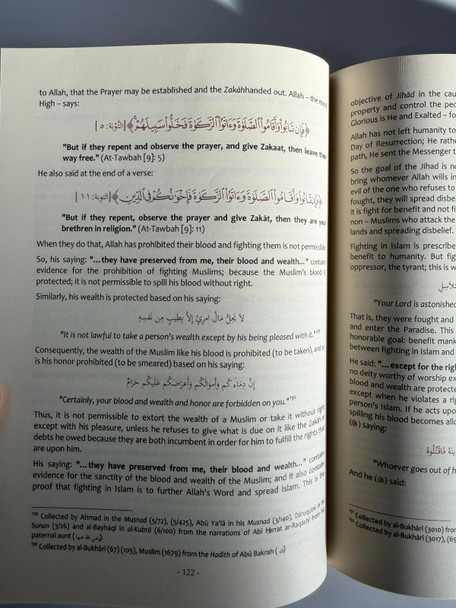 to Allah, that the Prayer may be established and the Zakáhhanded out. Allah – the most
High – says:
﴿فَإِن تَابُوا۟ وَأَقَامُوا۟ ٱلصَّلَوٰةَ وَءَاتَوُا۟ ٱلزَّكَوٰةَ فَخَلُّوا۟ سَبِيلَهُمْ﴾ [التوبة: ٥]
"But if they repent and observe the prayer, and give Zakaat, then leave their
way free." (At-Tawbah [9]: 5)
He also said at the end of a verse:
﴿فَإِن تَابُوا۟ وَأَقَامُوا۟ ٱلصَّلَوٰةَ وَءَاتَوُا۟ ٱلزَّكَوٰةَ فَإِخْوَٰنُكُمْ فِى ٱلدِّينِ﴾ [التوبة: ١١]
"But if they repent, observe the prayer and give Zakát, then they are your
brethren in religion." (At-Tawbah [9]: 11)
When they do that, Allah has prohibited their blood and fighting them is not permissible.
So, his saying: "...they have preserved from me, their blood and wealth..." contains
evidence for the prohibition of fighting Muslims; because the Muslim's blood is
protected; it is not permissible to spill his blood without right.
Similarly, his wealth is protected based on his saying:
لَا يَحِلُّ مَالُ امْرِئٍ إِلَّا بِطِيبٍ مِن نَفْسِهِ
"It is not lawful to take a person's wealth except by his being pleased with it."
Consequently, the wealth of the Muslim like his blood is prohibited (to be taken), and so
is his honor prohibited (to be smeared) based on his saying:
إِنَّ دِمَاءَكُم وَأَمْوَالَكُم وَأَعْرَاضَكُم عَلَيْكُم حَرَامٌ
"Certainly, your blood and wealth and honor are forbidden on you."¹³⁰
Thus, it is not permissible to extort the wealth of a Muslim or take it without right
except with his pleasure, unless he refuses to give what is due on it like the Zakáh or
debts he owed because they are both incumbent in order for him to fulfill the rights that
are upon him.
His saying: "...they have preserved from me, their blood and wealth..." contains
evidence for the sanctity of the blood and wealth of the Muslim; and it also contains
proof that fighting in Islam is to further Allah's Word and spread Islam. This is the
Collected by Ahmad in the Musnad (5/72), (5/425), Abū Ya'lā in his Musnad (3/140),
Sunan (3/26) and al-Bayhaqi in al-Kubrā (6/100) from the narrations of Abū
paternal aunt
¹³⁰ Collected by al-Bukhārī (67) (105), Muslim (1679) from the Hadīth of Abū Bakrah (ﷺ)
- 122 -
objective of Jihād in the cau
property and control the peo
Glorious is He and Exalted – fo
Allah has not left humanity to
Day of Resurrection; He rathe
path, He sent the Messenger t
So the goal of the Jihad is no
bring whomever Allah wills in
evil of the one who refuses to
fought, they will spread disbe
It is fight for benefit and not f
non – Muslims who attack the
lands and spreading disbelief.
Fighting in Islam is prescribe
benefit to humanity. But fig
oppressor, the tyrant; this is w
"Your Lord is astonished
That is, they were fought and
and enter the Paradise. This
honorable goal: benefit mank
between fighting in Islam and
He said: "...except for the righ
no deity worthy of worship ex
blood and wealth are protecte
except when he violates a rig
person's Islam. If he acts upo
spilling his blood becomes allo
(ﷺ) saying:
"Whoever goes out of h
And he (ﷺ) said:
Collected by al-Bukhārī (3010) from
Collected by al-Bukhārī (3017), (69